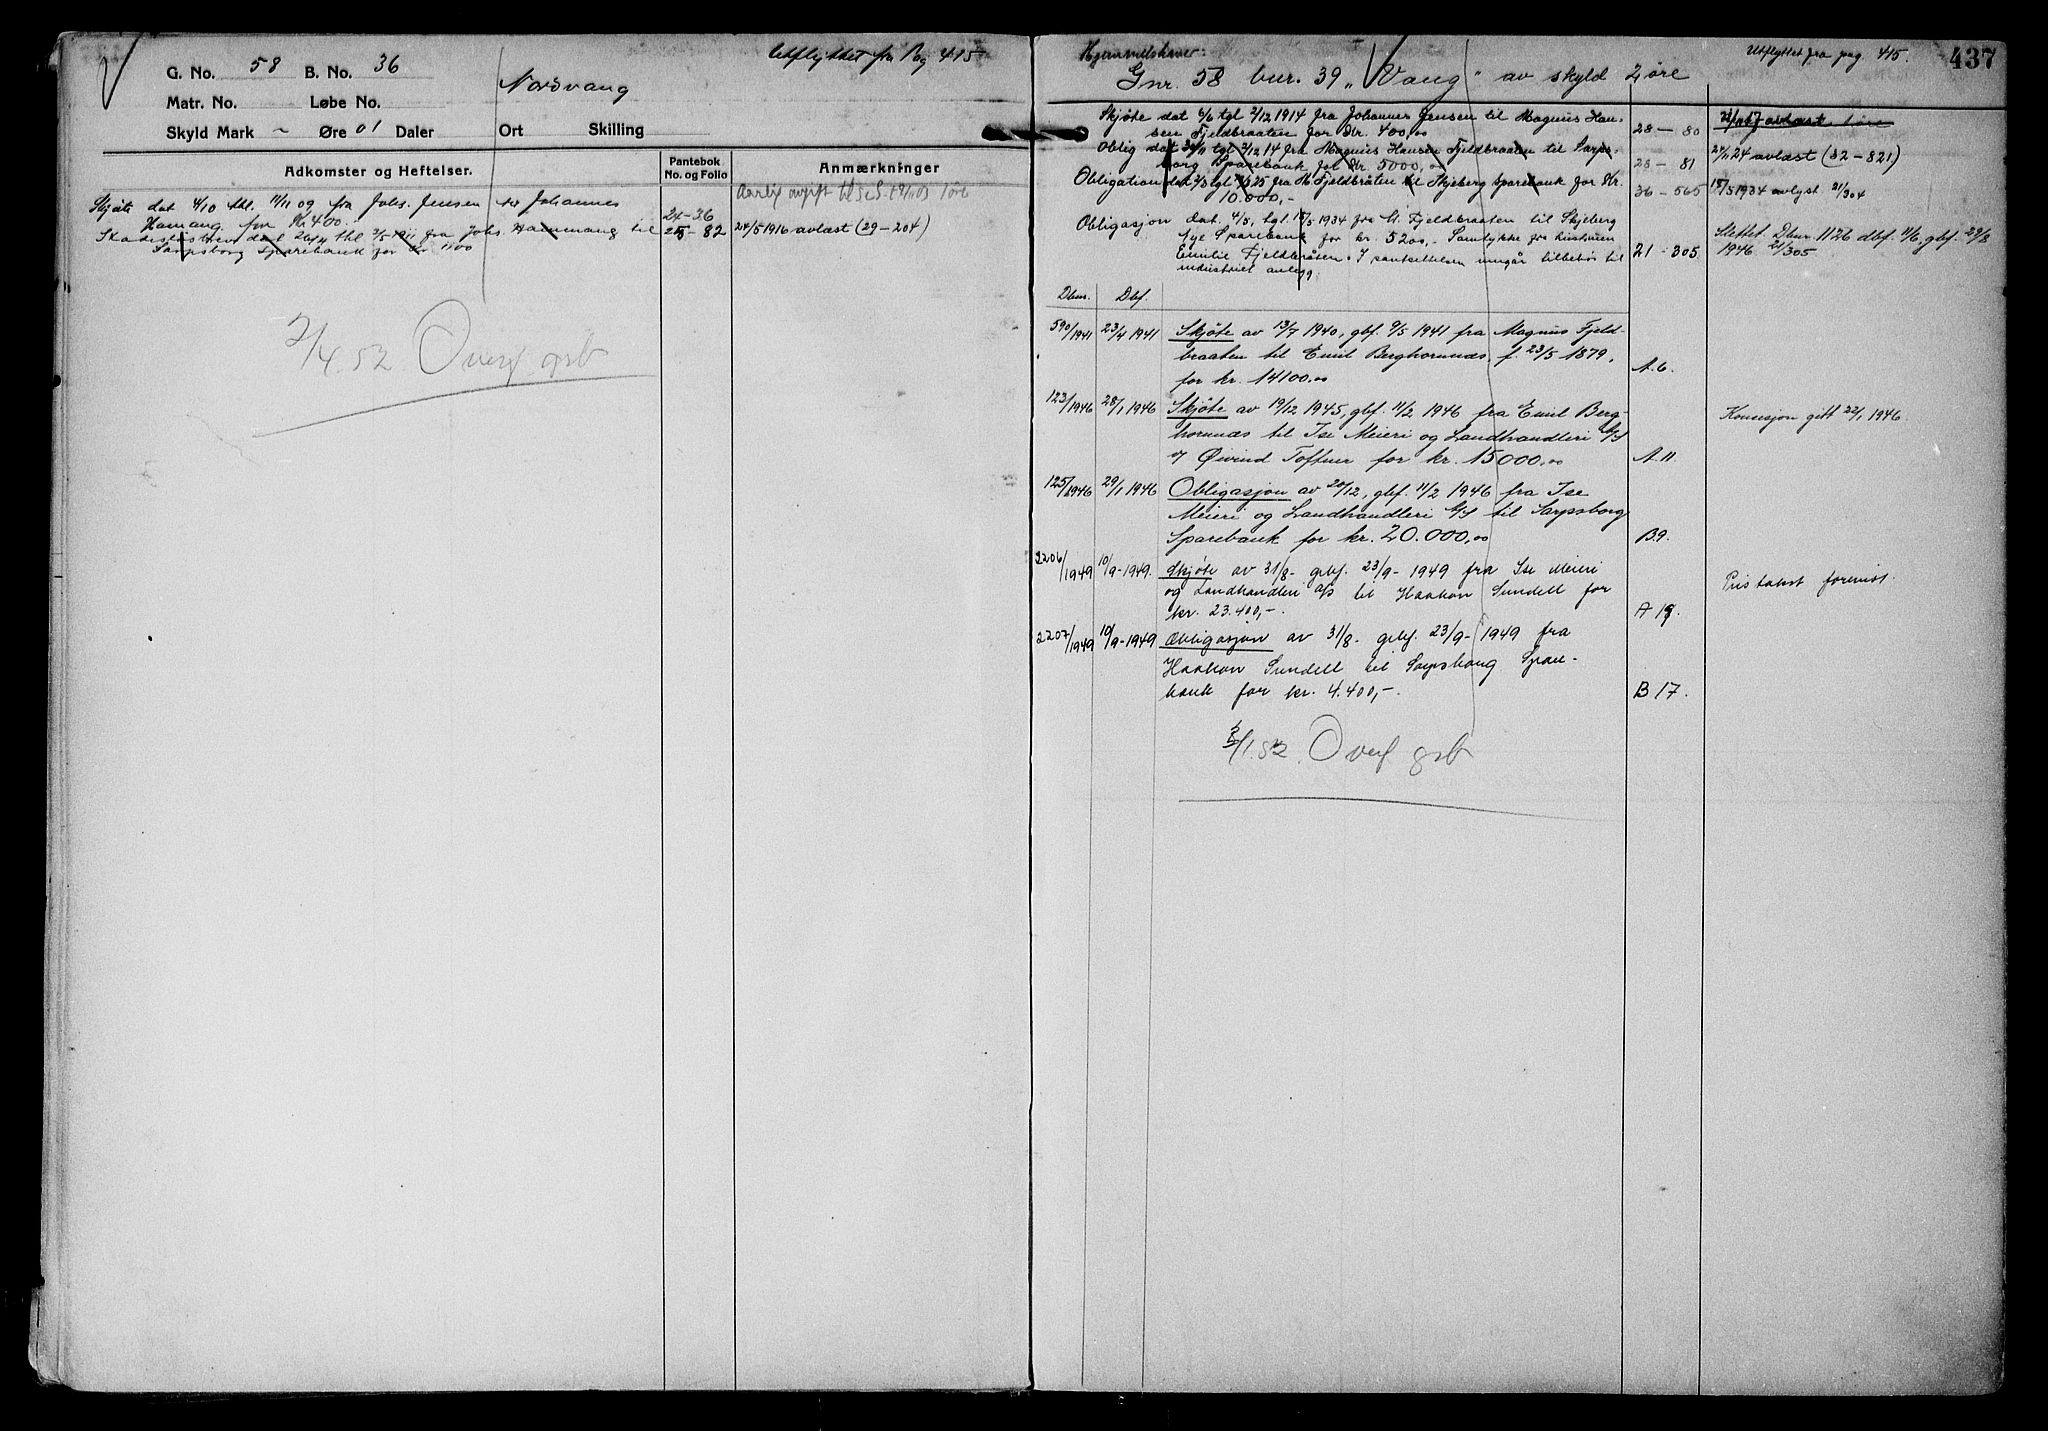 G. No. 58 B. No. 36
Utflyttet fra Pag 415
Matr. No. Løbe No.
Nordvang
Skyld Mark ~ Øre 01 Daler Ort Skilling
Adkomster og Heftelser.
Pantebok No. og Folio
Anmærkninger
Aarlig avgift til
Skjøte dat 4/10 thl. 11/11 09 fra Johs. Jensen til Johannes
Hamang for Kr 400.
24-36
Skadesløsbrev dat 26/4 thl 2/5 1911 fra Johs. Hammang til
Sarpsborg Sparebank for kr. 1100
25-82
24/5 1916 avlæst (29-204)
2/4.52 Overf gsb
Hjemmelshaver:
Utflyttet fra pag 415.
437
Gnr. 58 bnr. 39 „Vang" av skyld 2 øre
Skjøte dat 6/6 tgl 2/12 1914 fra Johannes Jensen til Magnus Han-
sen Fjeldbraaten for Kr. 400,00
28-80
Oblig dat 30/11 tgl 2/12 14 fra Magnus Hansen Fjeldbraaten til Sarps-
borg Sparebank for Kr 5000,00
28-81
24/11 24 avlæst (32-821)
Obligation dat 2/3 tgl 25 fra M Fjeldbråten til Skjeberg Sparebank for Kr.
10.000,-
36-565
15/5 1934 avlyst 21/304
Obligasjon dat. 4/5, tgl. 15/5 1934 fra M. Fjeldbraaten til Skjeberg
Nye Sparebank for kr. 5200,- Samtykke fra hustruen
Emilie Fjeldbråten. I pantettelsen inngår tilbehør til
industriel anlegg.
21-305
Slettet. Dbnr. 1126 dbf. 11/6, gbf. 29/8
1946 21/305
Dbnr. Dbf.
590/1941 23/4 1941 Skjøte av 13/7 1940, gbf. 9/5 1941 fra Magnus Fjeld-
braaten til Emil Berghornnæs, f. 23/5 1879,
for kr. 14100,00
A.6.
123/1946 28/1 1946 Skjøte av 19/12 1945, gbf. 11/2 1946 fra Emil Berg-
hornnæs til Ise Meieri og Landhandleri A/S
v/ Øivind Toftner for kr. 15000,00
A.11.
Konsesjon gitt 22/1 1946
125/1946 29/1 1946 Obligasjon av 20/12, gbf. 11/2 1946 fra Ise
Meieri og Landhandleri A/S til Sarpsborg
Sparebank for kr. 20.000,00
B.9.
2206/1949 10/9-1949. Skjøte av 31/8- gbf. 23/9-1949 fra Ise Meieri
og Landhandleri A/S til Haakon Sundell for
kr. 23.400,-.
A 19.
Pristakst forevist.
2207/1949 10/9-1949 Obligasjon av 31/8- gbf. 23/9-1949 fra
Haakon Sundell til Sarpsborg Spare-
bank for kr. 4.400,-.
B 17.
/1.52. Overf gsb